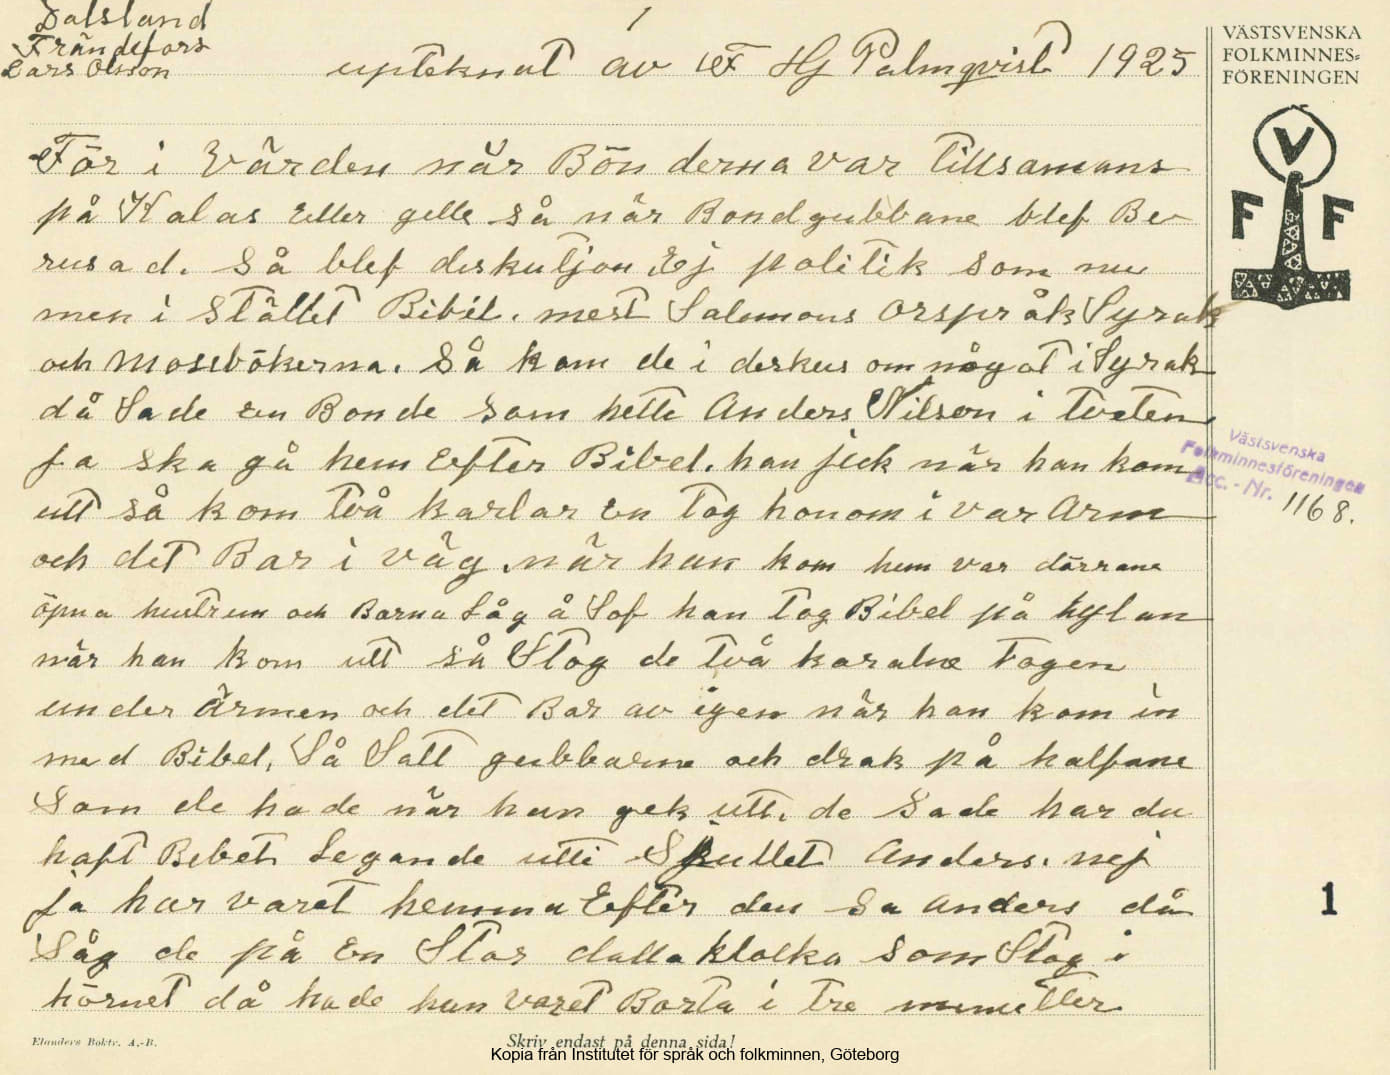 Dalsland
Frändefors
Lars Olsson
1
upteknat av F Hj Palmqvist 1925
VÄSTSVENSKA
FOLKMINNES=
FÖRENINGEN
V
F F
För i Värden när Bönderna var Tillsamans
på Kalas Eller gille så när Bondgubbane blef Be
rusad. så blef diskutjon Ej politik som nu
men i Stället Bibel. mest Salomons orspråk Syrak
och Mosebökerna. Så kom de i diskus om något i Syrak
då Sade en Bonde som hette Anders Nilson i tveten
ja ska gå hem Efter Bibel. han jick när han kom
utt så kom två karlar En tog honom i var Arm
och det Bar i väg. när han kom hem var dörrane
öpna hustrun och Barna Låg å Sof han tog Bibel på hylan
när han kom utt så Stog de två karalne togen
under Ärmen och det Bar av igen när han kom in
med Bibel, Så Satt gubbarne och drak på halfane
Som de hade när han gek utt. de Sade har du
haft Bibel Legande utti Skullet Anders. nej
ja har varet hemma Efter den sa anders då
Såg de på En Stor dallaklolka som Stog i
hörnet då hade han varet Borta i tre menutter
Västsvenska
Folkminnesföreningen
Acc. - Nr. 1168.
1
Elanders Boktr. A.-B.
Skriv endast på denna sida!
Kopia från Institutet för språk och folkminnen, Göteborg